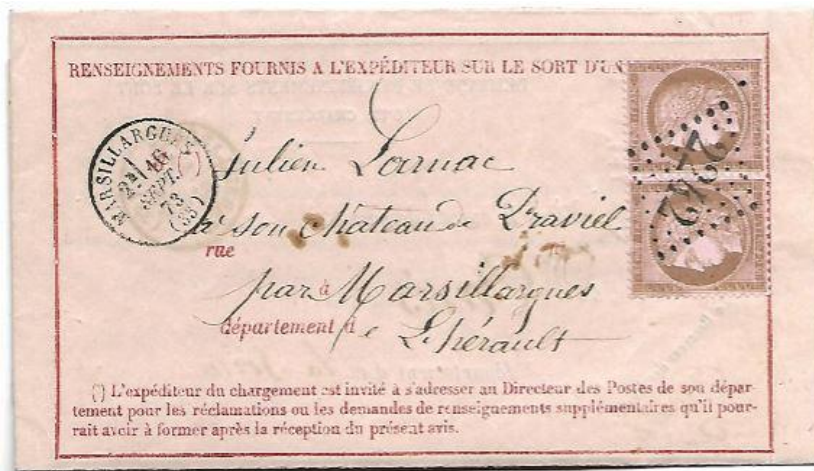 RENSEIGNEMENTS FOURNIS A L'EXPÉDITEUR SUR LE SORT D'UN
MARSILLARGUES
2E
16
SEPT.
73
(33)
Julien Larnac
à son château de Praviel
rue
à
par Marsillargues
département d
e L'hérault
2242
(*) L'expéditeur du chargement est invité à s'adresser au Directeur des Postes de son dépar-
tement pour les réclamations ou les demandes de renseignements supplémentaires qu'il pour-
rait avoir à former après la réception du présent avis.